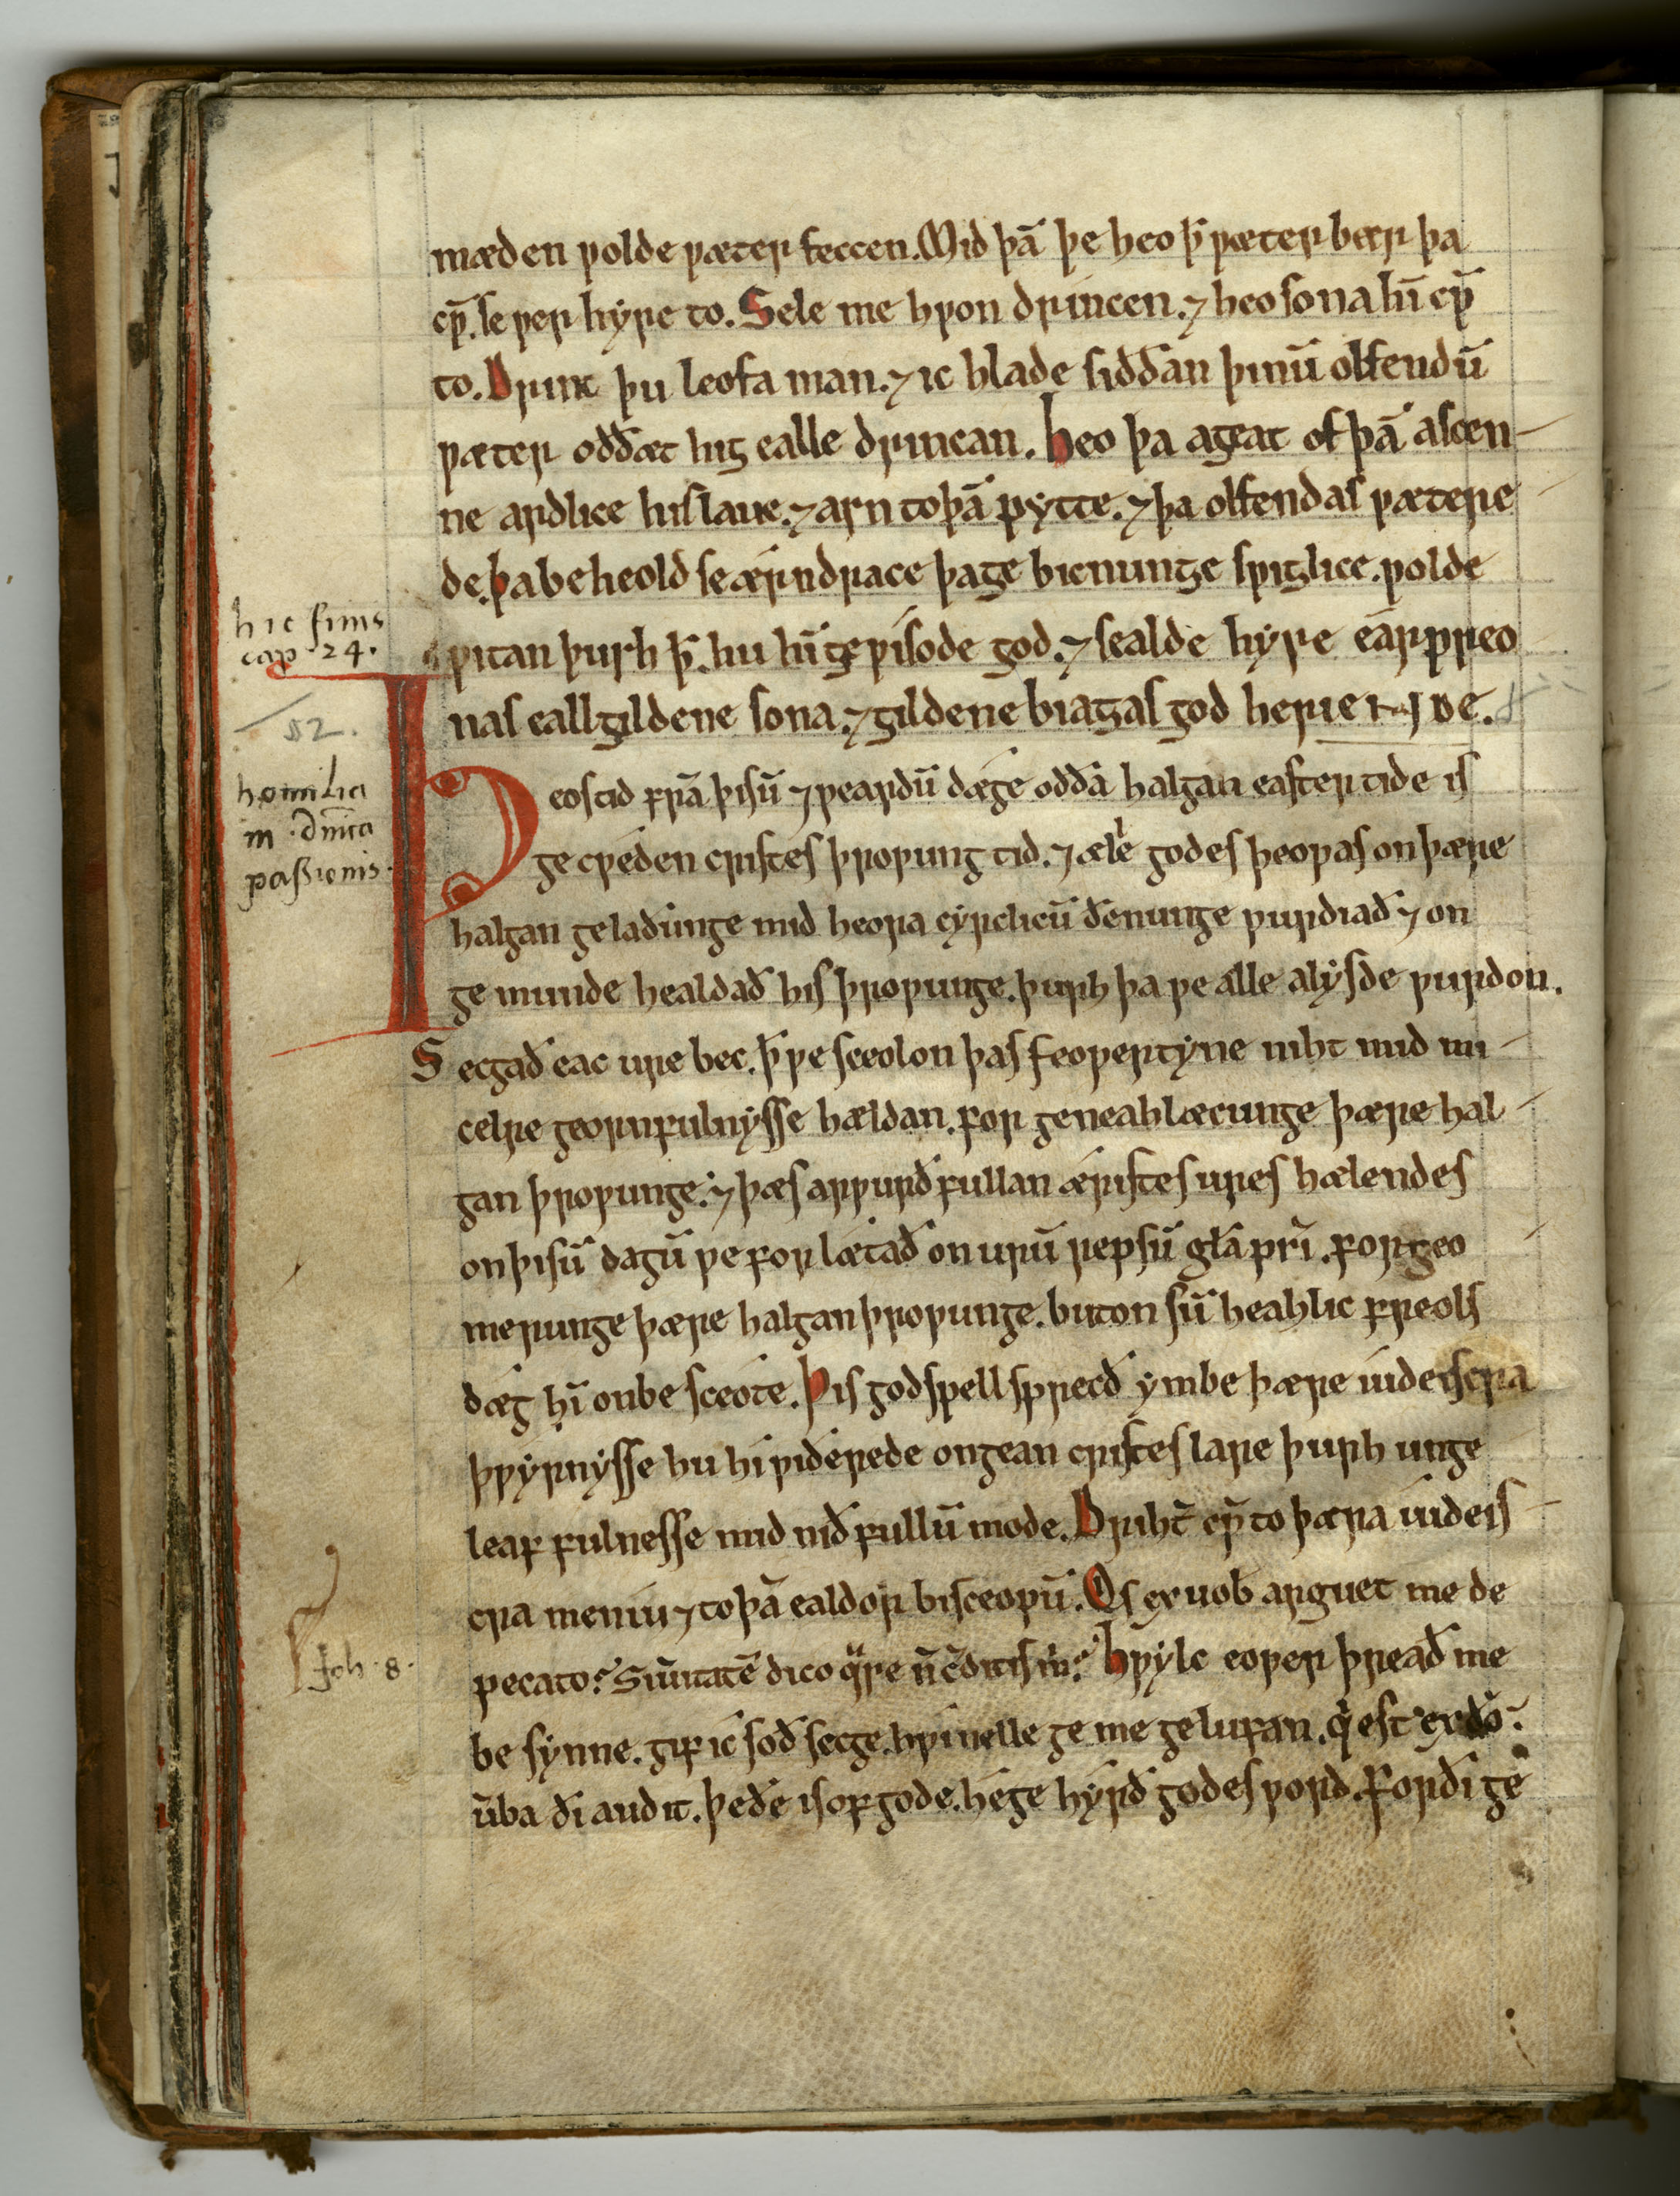 mæden ƿolde ƿæter feccen. Mid þā þe heo ꝥ ƿæter bær þa
cƿ̄. se ƿer hyre to. Sele me hƿon drincen. ⁊ heo sona hī cƿ̄
to. Drinc þu leofa man. ⁊ ic hlade siððan þinū olfendū
ƿæter oððæt hig ealle drincan. heo þa ageat of þā ascen
ne ardlice his laue. ⁊ arn to þā pytte. ⁊ þa olfendas ƿætere
de. þa beheold se ærindrace þa ge bicnunge sƿiglice. ƿolde
ƿitan þurh ꝥ. hu hī ge ƿisode god. ⁊ sealde hyre earpreo
nas eallgildene sona. ⁊ gildene biagas god heriende.
hic finis
cap 24.
52.
homilia
in dn̄ica
passionis.
Þeos tid frā þisū ⁊ƿeardū dæge oðða halgan easter tide is
ge cƿeden cristes þroƿung tid. ⁊ ælc godes þeoƿas on þære
halgan geladunge mid heora cyrclicū ðenunge ƿurðiað ⁊ on
ge munde healdað his þroƿunge. þurh þa ƿe alle alysde ƿurdon.
Secgað eac ure bec. ꝥ ƿe sceolon þas feoƿertyne niht mid mi
celre geornfulnysse hældan. for geneahlæcunge þære hal
gan þroƿunge. ⁊ þæs arƿurðfullan æristes ures hælendes
on þisū dagū ƿe forlætað on urū repsū gl̄a pr̄i. for geo
merunge þære halgan þroƿunge. buton sū heahlic freols
dæg hī onbe sceote. Þis godspell sprecð ymbe þære iudeiscra
þƿyrnysse hu hi ƿiðerede ongean cristes lare þurh unge
leaffulnesse mid niðfullū mode. Driht̄ cƿ̄ to þæra iudeis
cra meniu ⁊ to þā ealdor bisceopū. Qs ex uob arguet me de
pecato? Si ūitatē dico qͣre n̄ c̄ditis m̄? hƿylc eoƿer þreað me
be synne. gif ic soð secge. hƿi nelle ge me gelufan. qͥ est ex dō.
ūba dī audit. þe ðe is of gode. he ge hyrð godes ƿord. forði ge
Joh. 8.